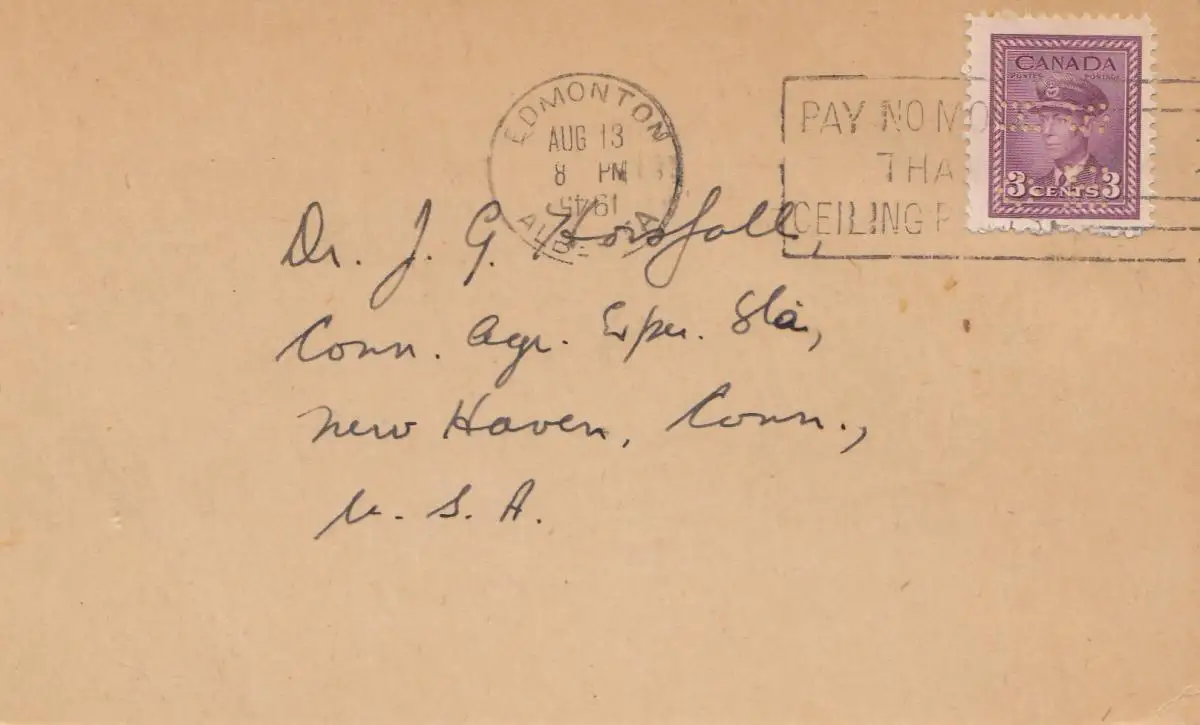 EDMONTON
AUG 13
8 PM
1945
ALBERTA
PAY NO MO
THA
CEILING P
CANADA
POSTES POSTAGE
3 CENTS 3
Dr. J. G. Horsfall,
Conn. Agr. Exper. Sta,
New Haven, Conn.,
U. S. A.